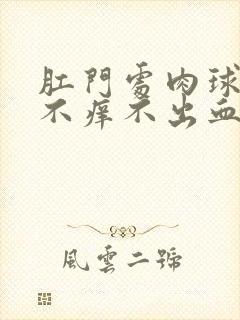 肛門處肉球
不癢不出血
風雲二號